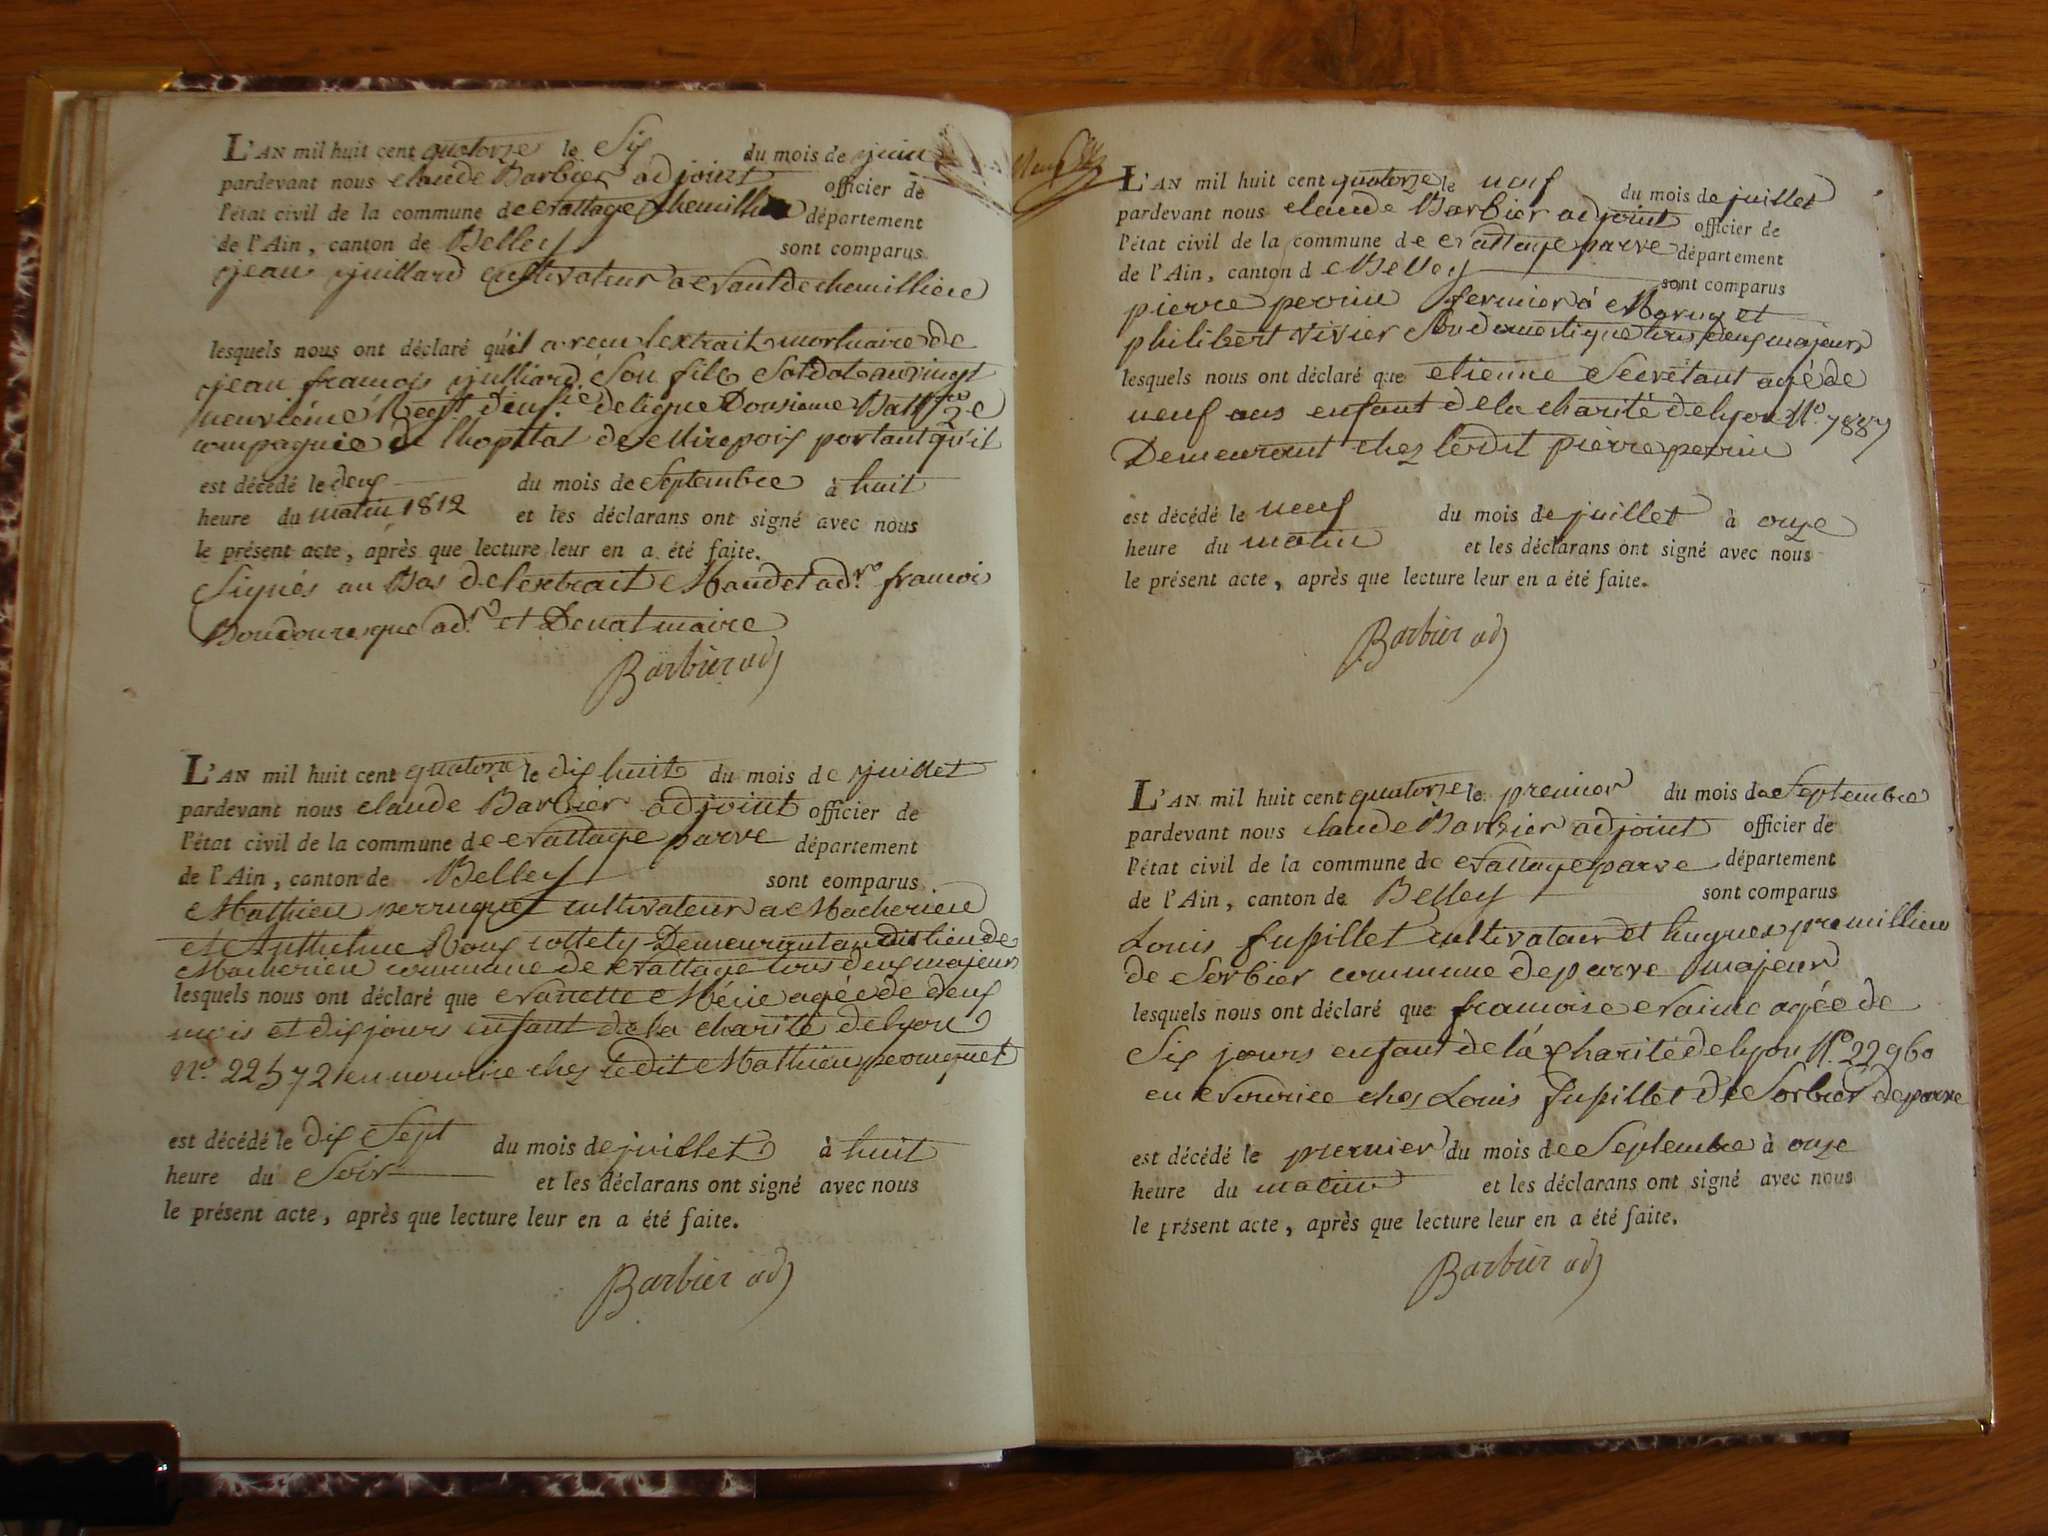 L'AN mil huit cent quatorze le Six du mois de juin
pardevant nous claude Barbier adjoint officier de
l'état civil de la commune de département
de l'Ain, canton de Belley sont comparus
jean juillard cultivateur a
lesquels nous ont déclaré qu'il a recu lextrait mortuaire de
jean francois julliard Son fils Soldat au vingt
neuvième Regt dinf.ie deligne Bat 2e
compagnie de lhopital de Mirepoix portant qu'il
est décédé le deux du mois de Septembre à huit
heure du matin 1812 et les déclarans ont signé avec nous
le présent acte, après que lecture leur en a été faite.
Signés au Bas de lextrait francois
Boudouresque et maire
Barbier adj
L'AN mil huit cent quatorze le dix huit du mois de juillet
pardevant nous claude Barbier adjoint officier de
l'état civil de la commune de parve département
de l'Ain, canton de Belley sont comparus
Mathieu perruquet cultivateur a Macherieu
et Anthelme Demeurant au dit lieu de
Macherieu commune de tous deux majeurs
lesquels nous ont déclaré que agée de deux
mois et dix jours enfant de la charité de lyon
N.o 22572 en chez le dit Mathieu perruquet
est décédé le dix Sept du mois de juillet à huit
heure du Soir et les déclarans ont signé avec nous
le présent acte, après que lecture leur en a été faite.
Barbier adj
L'AN mil huit cent quatorze le neuf du mois de juillet
pardevant nous claude Barbier adjoint officier de
l'état civil de la commune de parve département
de l'Ain, canton de Belley sont comparus
pierre perrin fermier à et
philibert vivier Son domestique tous deux majeurs
lesquels nous ont déclaré que etienne Secrétant agé de
neuf ans enfant de la charité de lyon N.o 7887
Demeurant chez ledit pierre perrin
est décédé le neuf du mois de juillet à onze
heure du matin et les déclarans ont signé avec nous
le présent acte, après que lecture leur en a été faite.
Barbier adj
L'AN mil huit cent quatorze le premier du mois de Septembre
pardevant nous claude Barbier adjoint officier de
l'état civil de la commune de parve département
de l'Ain, canton de Belley sont comparus
Louis fusillet cultivateur et hugues premillieu
de Sorbier commune de parve majeur
lesquels nous ont déclaré que francoise agée de
Six jours enfant de la charité de lyon N.o 22960
en chez Louis fusillet de Sorbier de parve
est décédé le premier du mois de Septembre à onze
heure du matin et les déclarans ont signé avec nous
le présent acte, après que lecture leur en a été faite.
Barbier adj